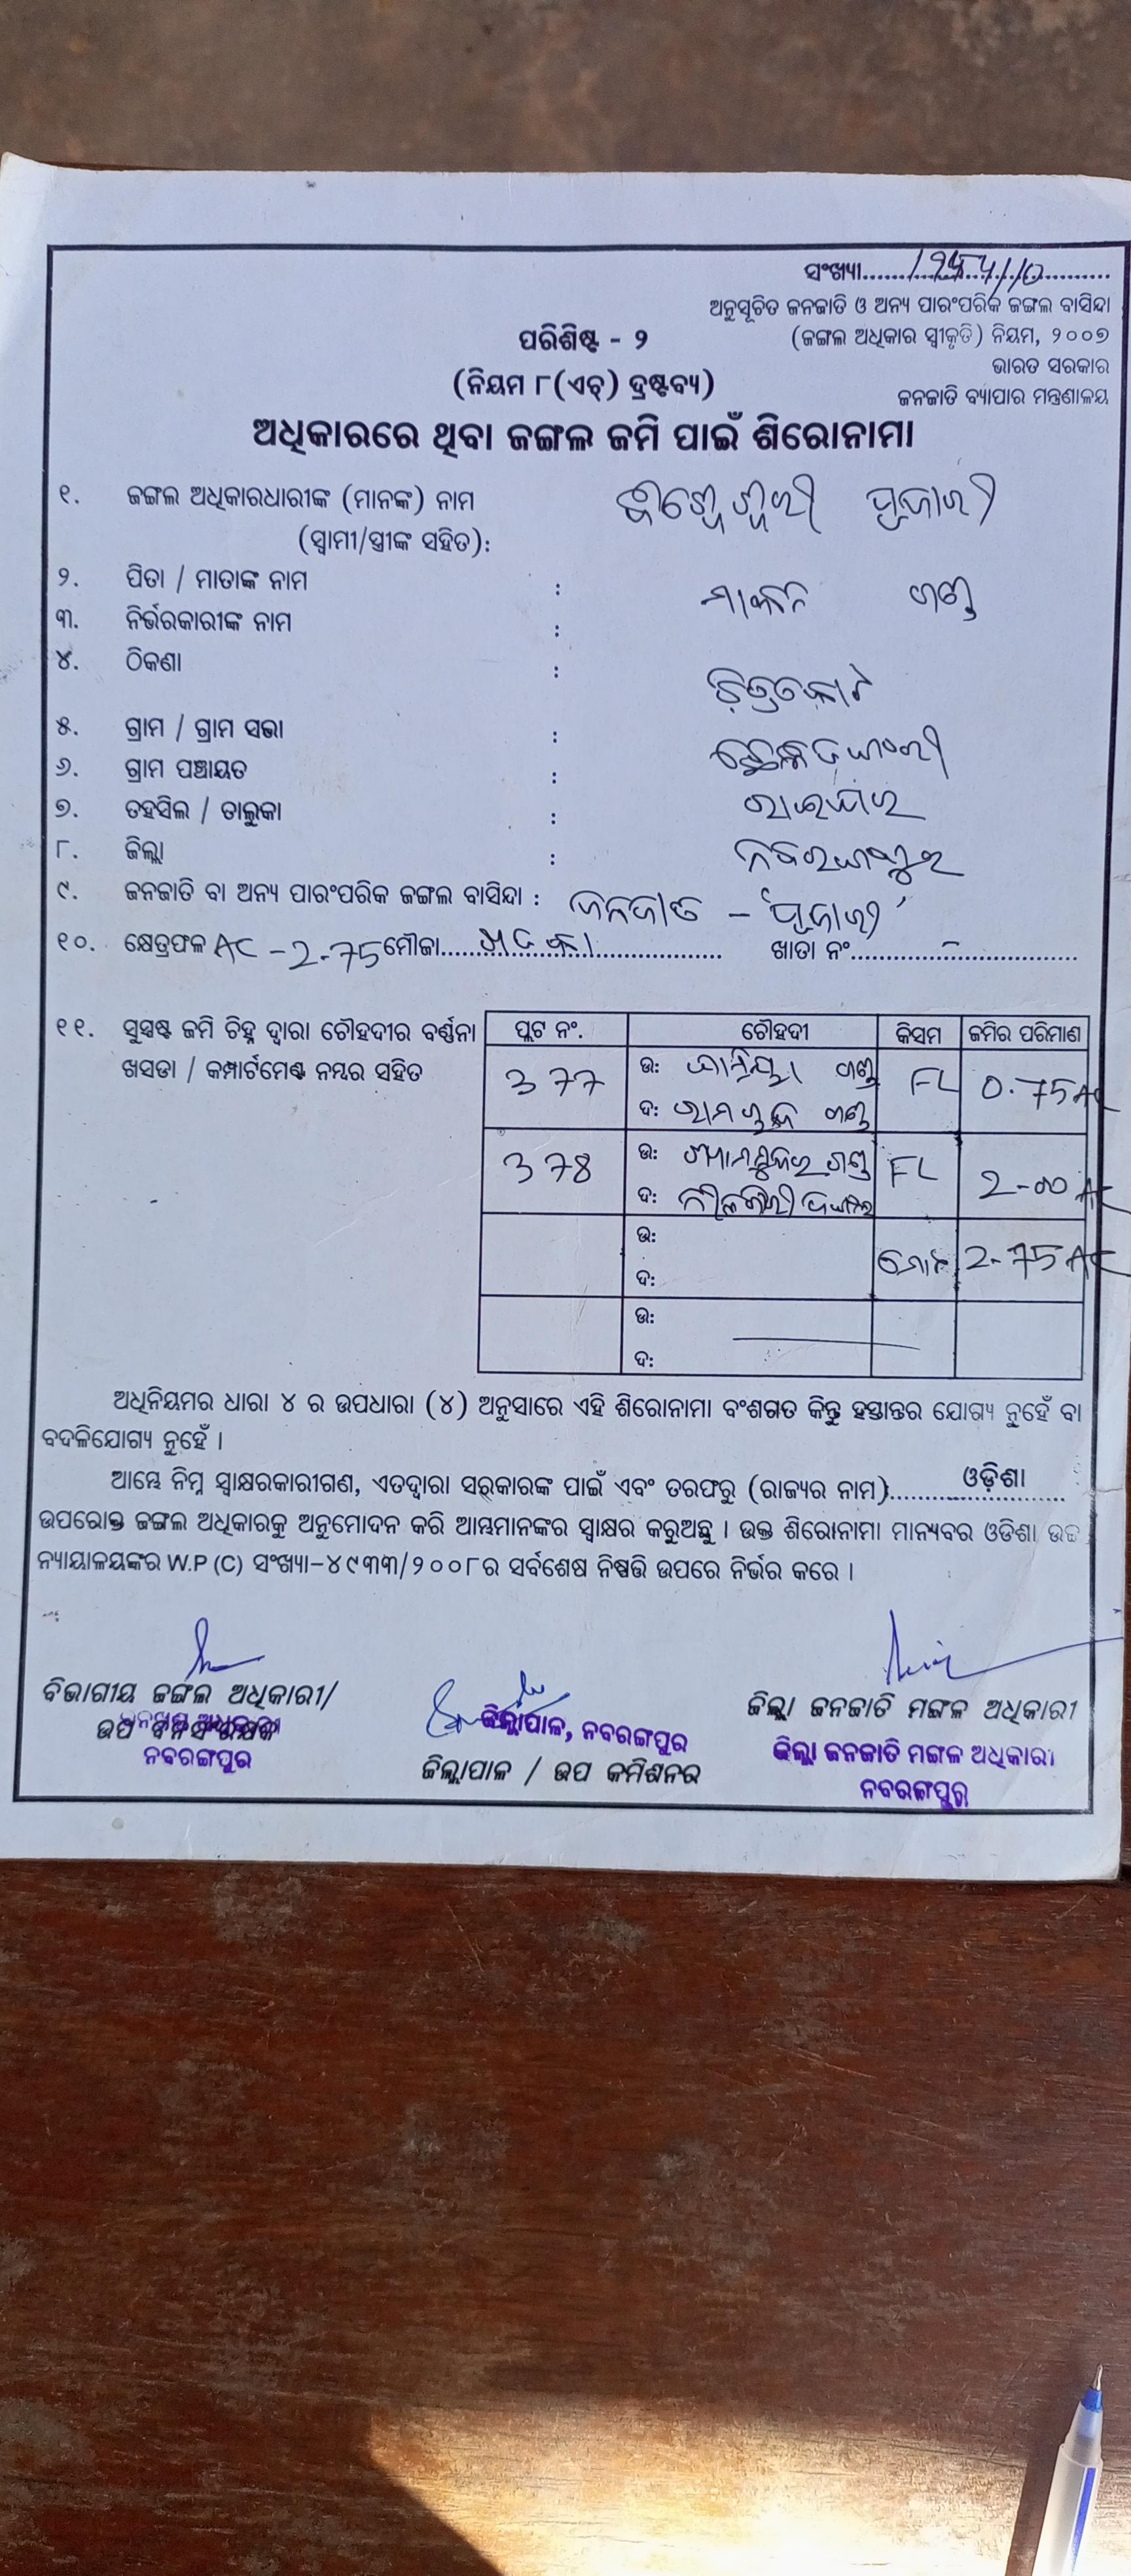 ସଂଖ୍ୟା..........................
ଅନୁସୂଚିତ ଜନଜାତି ଓ ଅନ୍ୟ ପାରଂପରିକ ଜଙ୍ଗଲ ବାସିନ୍ଦା
(ଜଙ୍ଗଲ ଅଧିକାର ସ୍ୱୀକୃତି) ନିୟମ, ୨୦୦୭
ଭାରତ ସରକାର
ଜନଜାତି ବ୍ୟାପାର ମନ୍ତ୍ରଣାଳୟ
ପରିଶିଷ୍ଟ - ୨
(ନିୟମ ୮(ଏଚ୍) ଦ୍ରଷ୍ଟବ୍ୟ)
ଅଧିକାରରେ ଥିବା ଜଙ୍ଗଲ ଜମି ପାଇଁ ଶିରୋନାମା
୧. ଜଙ୍ଗଲ ଅଧିକାରଧାରୀଙ୍କ (ମାନଙ୍କ) ନାମ ପୂଜାରୀ
(ସ୍ୱାମୀ/ସ୍ତ୍ରୀଙ୍କ ସହିତ):
୨. ପିତା / ମାତାଙ୍କ ନାମ : ଗଣ୍ଡ
୩. ନିର୍ଭରକାରୀଙ୍କ ନାମ :
୪. ଠିକଣା :
୫. ଗ୍ରାମ / ଗ୍ରାମ ସଭା :
୬. ଗ୍ରାମ ପଞ୍ଚାୟତ :
୭. ତହସିଲ / ତାଲୁକା : ରାଇଘର
୮. ଜିଲ୍ଲା : ନବରଙ୍ଗପୁର
୯. ଜନଜାତି ବା ଅନ୍ୟ ପାରଂପରିକ ଜଙ୍ଗଲ ବାସିନ୍ଦା : ଜନଜାତି - 'ପୂଜାରୀ'
୧୦. କ୍ଷେତ୍ରଫଳ AC - 2.75 ମୌଜା.......................... ଖାତା ନଂ.............-.............
୧୧. ସୁସ୍ପଷ୍ଟ ଜମି ଚିହ୍ନ ଦ୍ୱାରା ଚୌହଦୀର ବର୍ଣ୍ଣନା
ଖସଡା / କମ୍ପାର୍ଟମେଣ୍ଟ ନମ୍ବର ସହିତ
ପ୍ଲଟ ନଂ. ଚୌହଦୀ କିସମ ଜମିର ପରିମାଣ
377 ଉ: ଗଣ୍ଡ FL 0.75 AC
ଦ: ଗଣ୍ଡ
378 ଉ: ଗଣ୍ଡ FL 2-00 AC
ଦ:
ଉ: ମୋଟ 2-75 AC
ଦ:
ଉ:
ଦ:
ଅଧିନିୟମର ଧାରା ୪ ର ଉପଧାରା (୪) ଅନୁସାରେ ଏହି ଶିରୋନାମା ବଂଶଗତ କିନ୍ତୁ ହସ୍ତାନ୍ତର ଯୋଗ୍ୟ ନୁହେଁ ବା
ବଦଳିଯୋଗ୍ୟ ନୁହେଁ ।
ଆମ୍ଭେ ନିମ୍ନ ସ୍ୱାକ୍ଷରକାରୀଗଣ, ଏତଦ୍ୱାରା ସର୍କାରଙ୍କ ପାଇଁ ଏବଂ ତରଫରୁ (ରାଜ୍ୟର ନାମ)..........ଓଡ଼ିଶା..........
ଉପରୋକ୍ତ ଜଙ୍ଗଲ ଅଧିକାରକୁ ଅନୁମୋଦନ କରି ଆମ୍ଭମାନଙ୍କର ସ୍ୱାକ୍ଷର କରୁଅଛୁ । ଉକ୍ତ ଶିରୋନାମା ମାନ୍ୟବର ଓଡିଶା ଉଚ୍ଚ
ନ୍ୟାୟାଳୟଙ୍କର W.P (C) ସଂଖ୍ୟା-୪୯୩୩/୨୦୦୮ର ସର୍ବଶେଷ ନିଷ୍ପତ୍ତି ଉପରେ ନିର୍ଭର କରେ ।
ବିଭାଗୀୟ ଜଙ୍ଗଲ ଅଧିକାରୀ/
ଉପ ବନସଂରକ୍ଷକ
ନବରଙ୍ଗପୁର
ଜିଲ୍ଲାପାଳ, ନବରଙ୍ଗପୁର
ଜିଲ୍ଲାପାଳ / ଉପ କମିଶନର
ଜିଲ୍ଲା ଜନଜାତି ମଙ୍ଗଳ ଅଧିକାରୀ
ଜିଲ୍ଲା ଜନଜାତି ମଙ୍ଗଳ ଅଧିକାରୀ
ନବରଙ୍ଗପୁର